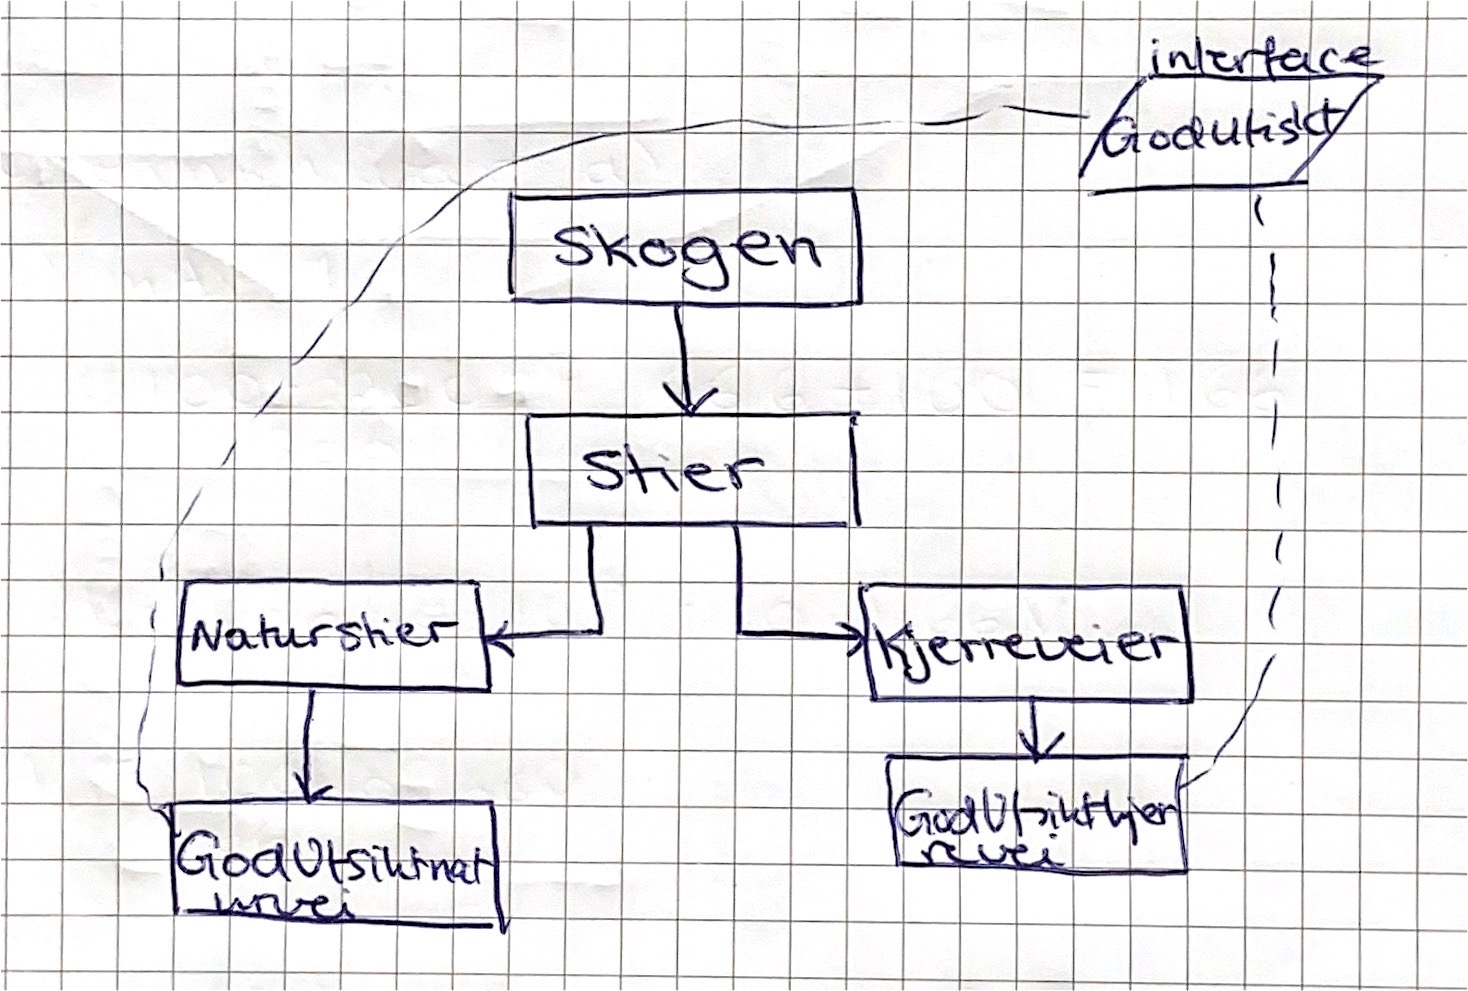 interface
Godutiskt
Skogen
Stier
Naturstier
Kjerreveier
GodUtsiktnat
urvei
GodUtsiktkjer
revei